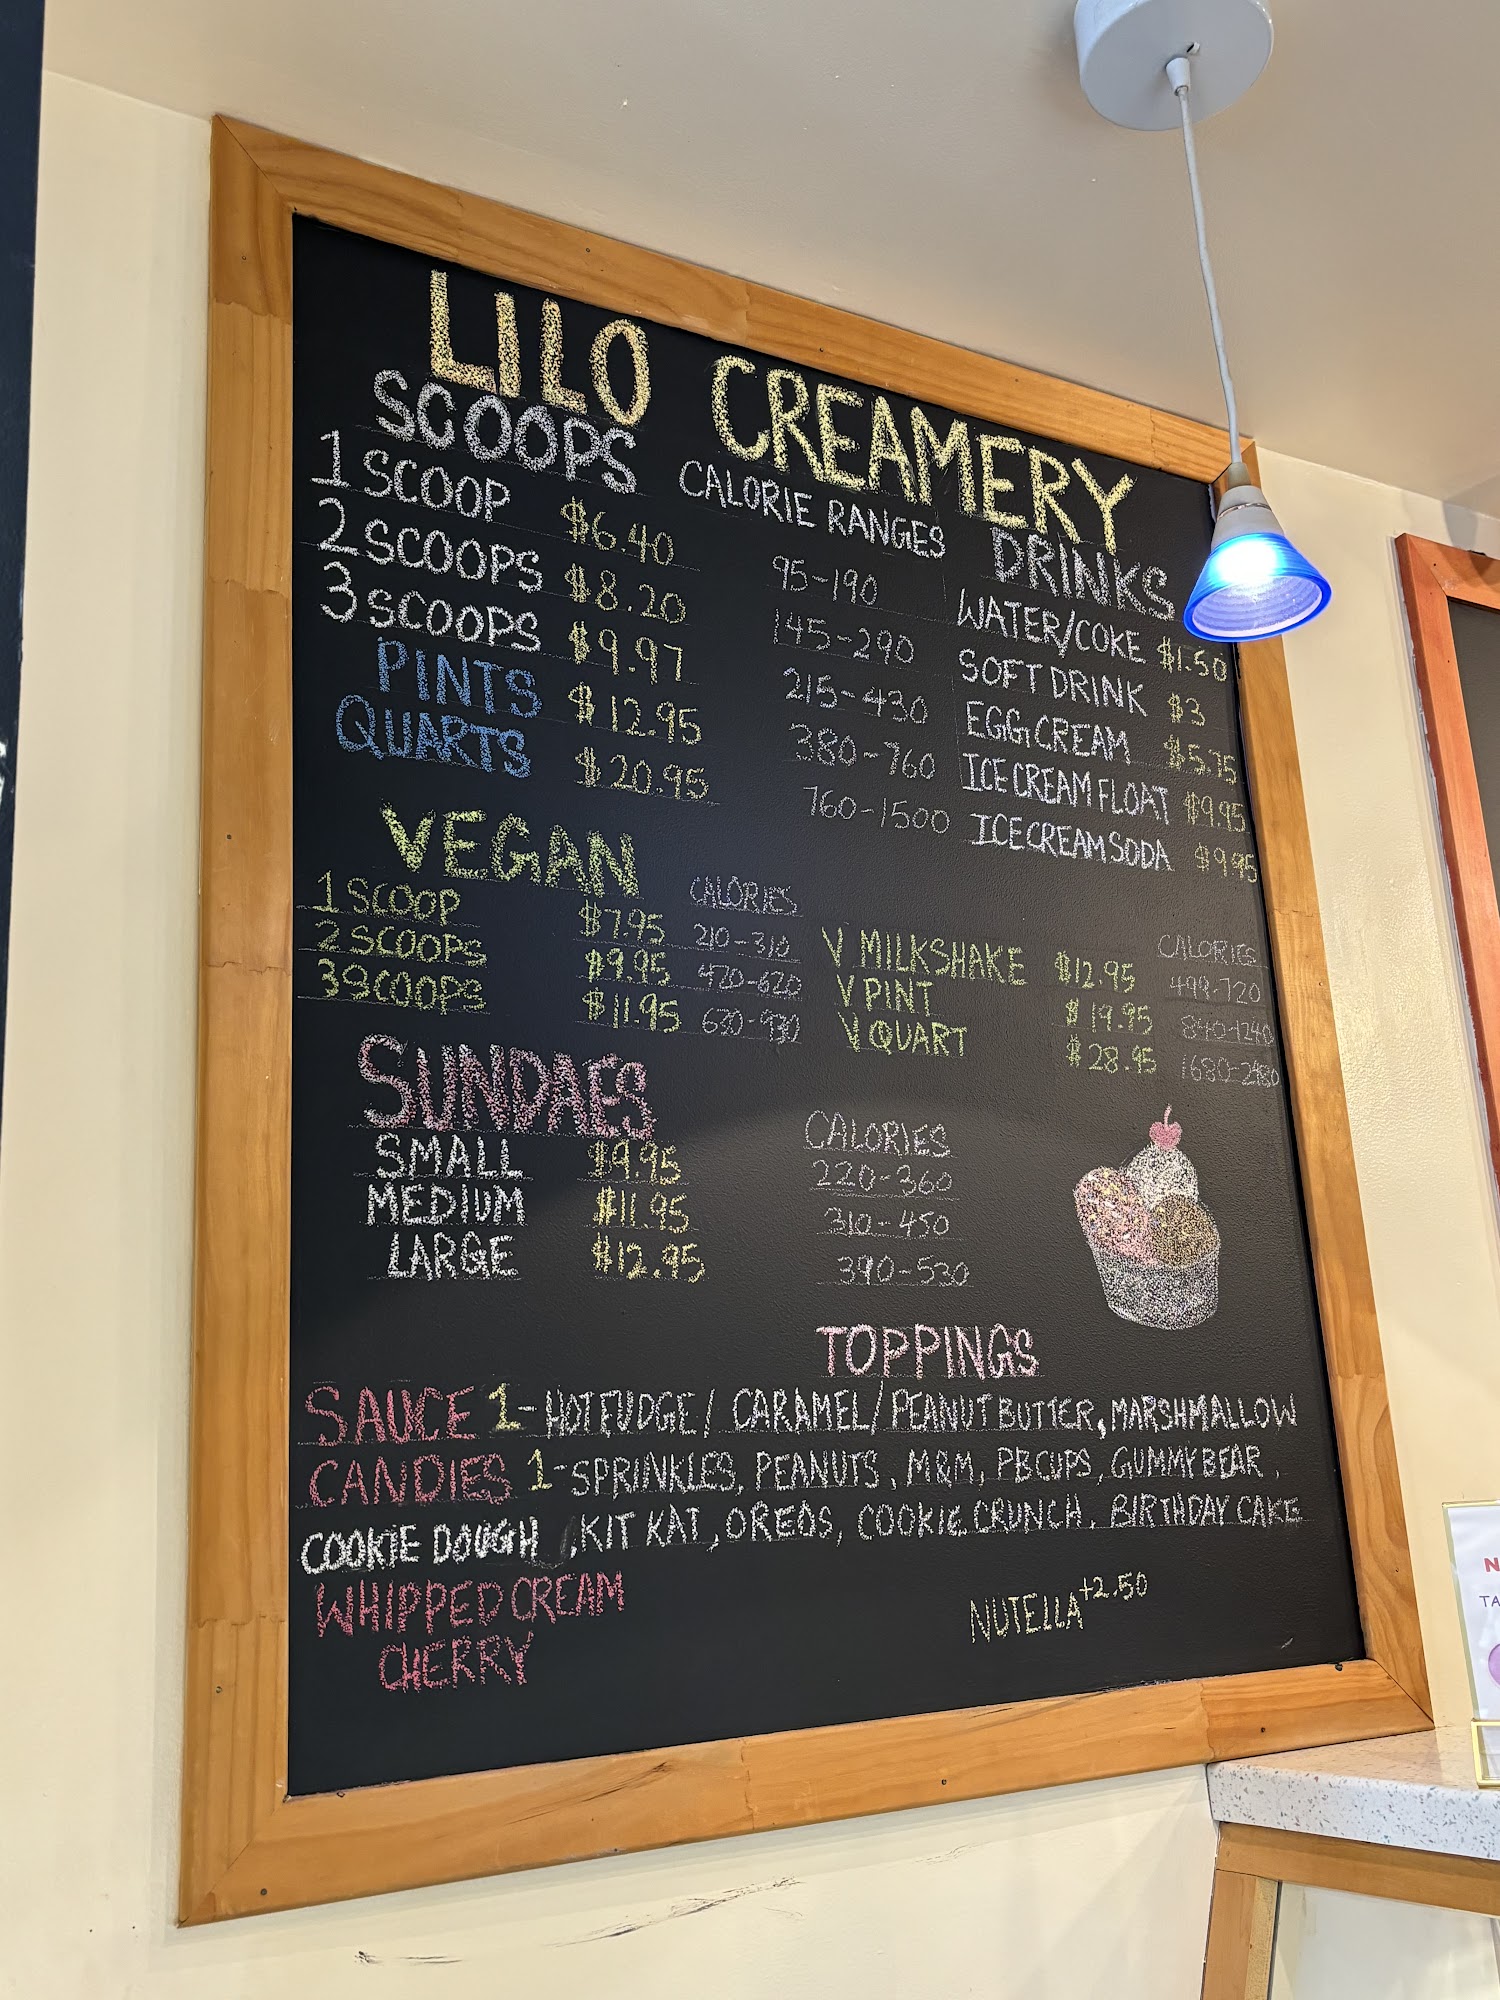 LILO CREAMERY
SCOOPS CALORIE RANGES
1 SCOOP $6.40 95-190
2 SCOOPS $8.20 145-290
3 SCOOPS $9.97 215-430
PINTS $12.95 380-760
QUARTS $20.95 760-1500
DRINKS
WATER/COKE $1.50
SOFT DRINK $3
EGG CREAM $5.75
ICE CREAM FLOAT $9.95
ICE CREAM SODA $9.95
VEGAN CALORIES
1 SCOOP $7.95 210-310
2 SCOOPS $9.95 420-620
3 SCOOPS $11.95 630-930
CALORIES
V MILKSHAKE $12.95 499-720
V PINT $19.95 840-1240
V QUART $28.95 1680-2480
SUNDAES CALORIES
SMALL $9.95 220-360
MEDIUM $11.95 310-450
LARGE $12.95 390-530
TOPPINGS
SAUCE 1-HOT FUDGE/ CARAMEL/PEANUT BUTTER, MARSHMALLOW
CANDIES 1-SPRINKLES, PEANUTS, M&M, PB CUPS, GUMMY BEAR,
COOKIE DOUGH, KIT KAT, OREOS, COOKIE CRUNCH, BIRTHDAY CAKE
WHIPPED CREAM
CHERRY
NUTELLA +2.50